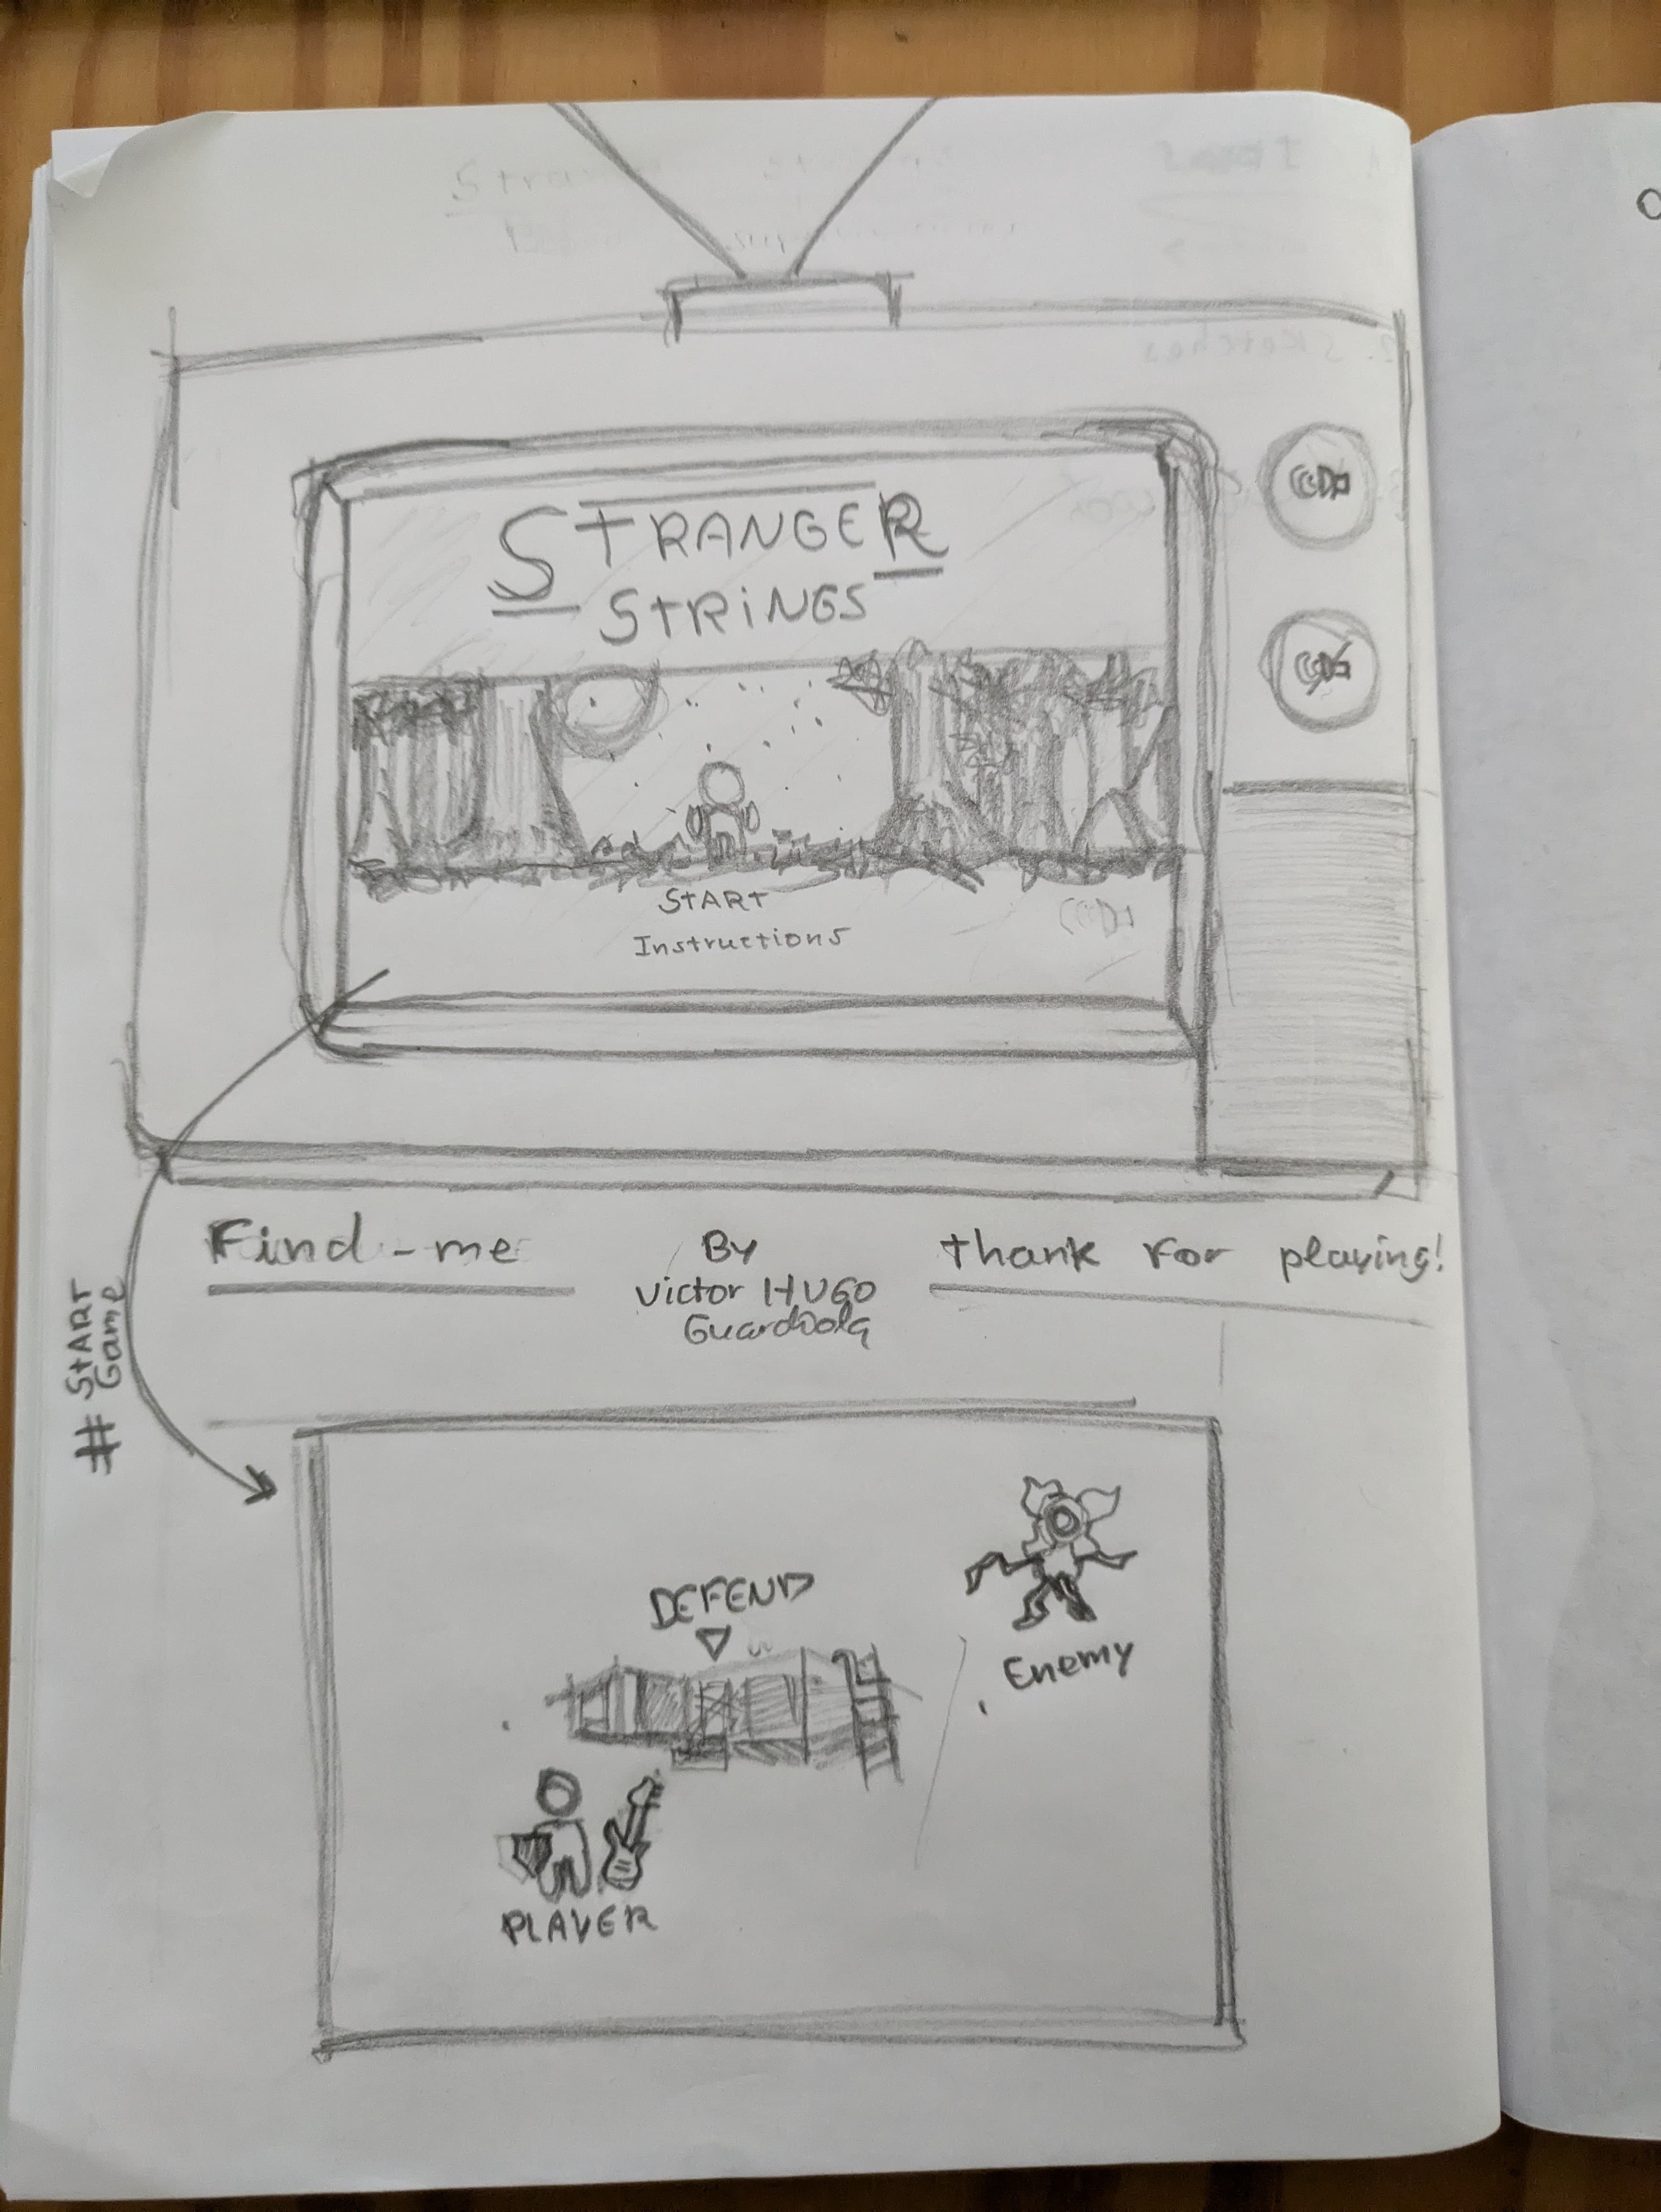 STRANGER
STRINGS
START
Instructions
Find-me
By
Victor HUGO
Thank For playing!
# START
Game
DEFEND
Enemy
PLAYER